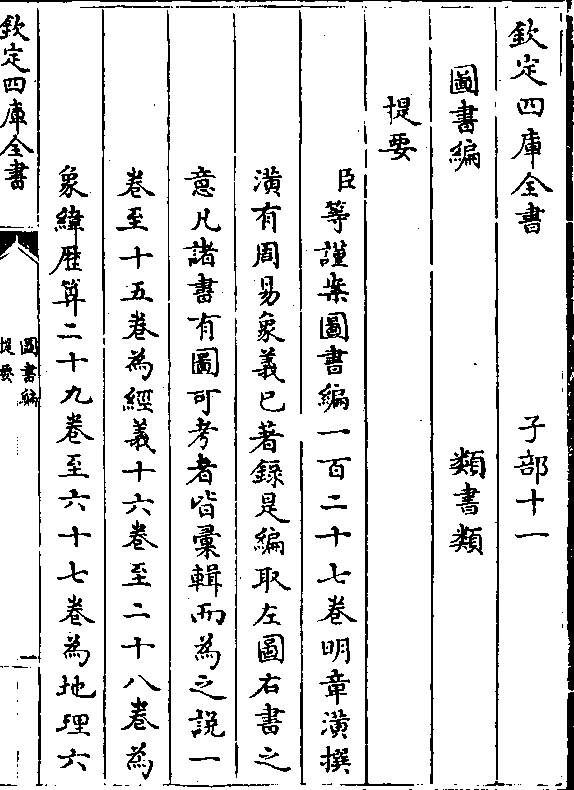 欽定四庫全書　子部十一
圖書編　類書類
提要
臣等謹案圖書編一百二十七卷明章潢撰
潢有周易象義已著錄是編取左圖右書之
意凡諸書有圖可考者皆彙輯而為之說一
卷至十五卷為經義十六卷至二十八卷為
象緯歴算二十九卷至六十七卷為地理六
欽定四庫全書
圖書編
提要
一